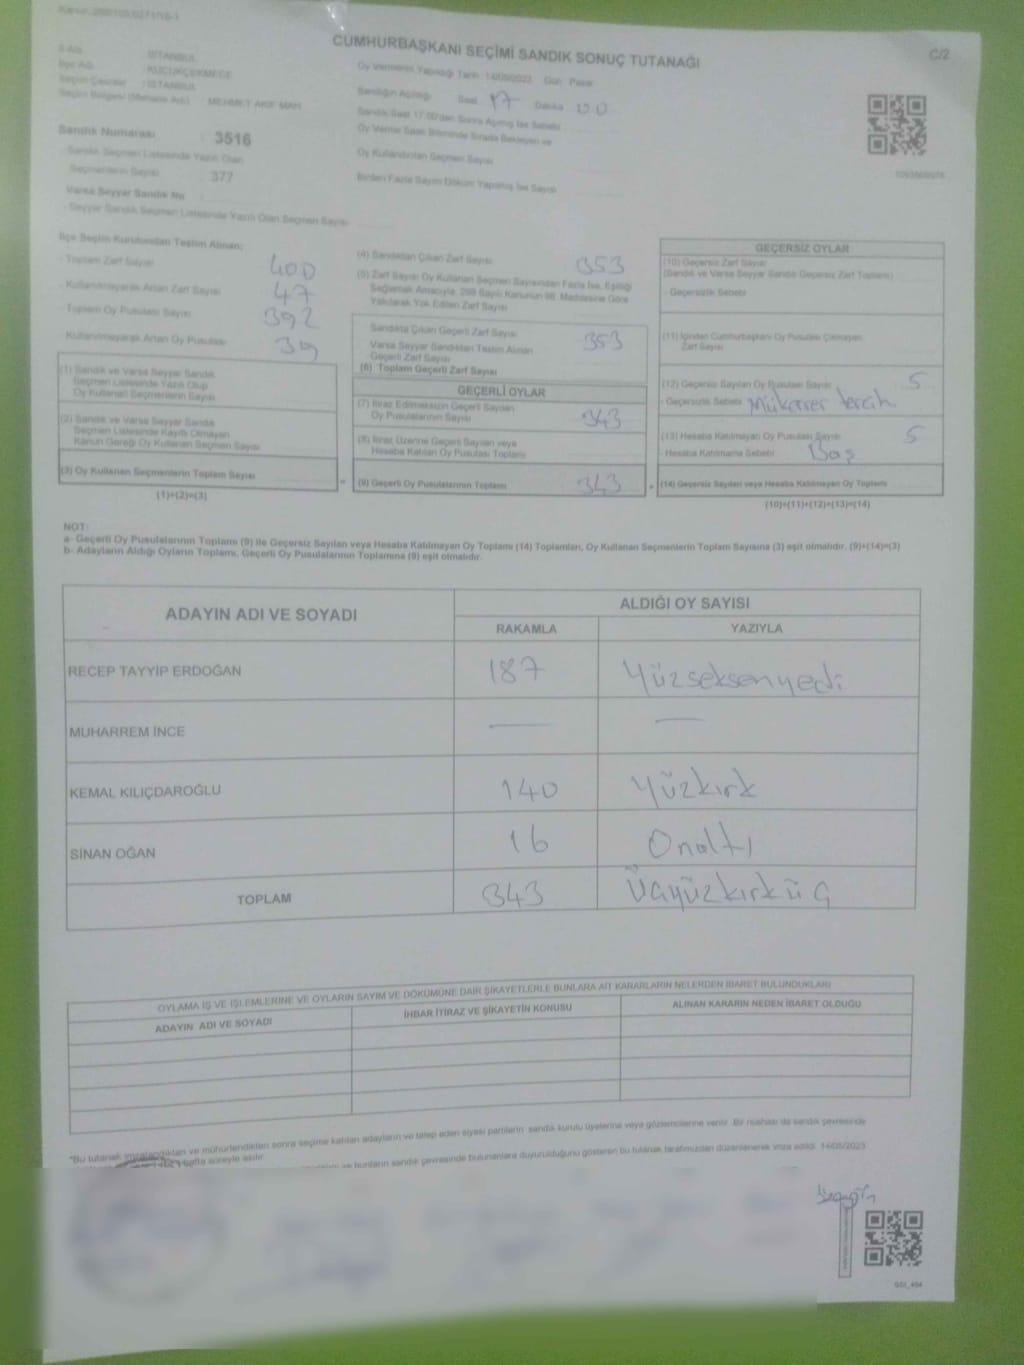 CUMHURBAŞKANI SEÇİMİ SANDIK SONUÇ TUTANAĞI
C/2
İl Adı : İSTANBUL
İlçe Adı : KÜÇÜKÇEKMECE
Seçim Çevresi : İSTANBUL
Seçim Bölgesi (Mahalle Adı) : MEHMET AKİF MAH.
Sandık Numarası : 3516
- Sandık Seçmen Listesinde Yazılı Olan
Seçmenlerin Sayısı : 377
Varsa Seyyar Sandık No :
- Seyyar Sandık Seçmen Listesinde Yazılı Olan Seçmen Sayısı
Oy Vermenin Yapıldığı Tarih: 14/05/2023 Gün: Pazar
Sandığın Açıldığı Saat 17 Dakika 00
Sandık Saat 17.00'den Sonra Açılmış İse Sebebi
Oy Verme Saati Bitiminde Sırada Bekleyen ve
Oy Kullandırılan Seçmen Sayısı
Birden Fazla Sayım Döküm Yapılmış İse Sayısı
İlçe Seçim Kurulundan Teslim Alınan;
- Toplam Zarf Sayısı 400
- Kullanılmayarak Artan Zarf Sayısı 47
- Toplam Oy Pusulası Sayısı 392
- Kullanılmayarak Artan Oy Pusulası 39
(1) Sandık ve Varsa Seyyar Sandık
Seçmen Listesinde Yazılı Olup
Oy Kullanan Seçmenlerin Sayısı
(2) Sandık ve Varsa Seyyar Sandık
Seçmen Listesinde Kayıtlı Olmayan
Kanun Gereği Oy Kullanan Seçmen Sayısı
(3) Oy Kullanan Seçmenlerin Toplam Sayısı
(1)+(2)=(3)
(4) Sandıktan Çıkan Zarf Sayısı 353
(5) Zarf Sayısı Oy Kullanan Seçmen Sayısından Fazla İse, Eşitliği
Sağlamak Amacıyla, 298 Sayılı Kanunun 98. Maddesine Göre
Yakılarak Yok Edilen Zarf Sayısı
Sandıkta Çıkan Geçerli Zarf Sayısı 353
Varsa Seyyar Sandıktan Teslim Alınan
Geçerli Zarf Sayısı
(6) Toplam Geçerli Zarf Sayısı
GEÇERLİ OYLAR
(7) İtiraz Edilmeksizin Geçerli Sayılan
Oy Pusulalarının Sayısı 343
(8) İtiraz Üzerine Geçerli Sayılan veya
Hesaba Katılan Oy Pusulası Toplamı
(9) Geçerli Oy Pusulalarının Toplamı 343
GEÇERSİZ OYLAR
(10) Geçersiz Zarf Sayısı
(Sandık ve Varsa Seyyar Sandık Geçersiz Zarf Toplamı)
- Geçersizlik Sebebi
(11) İçinden Cumhurbaşkanı Oy Pusulası Çıkmayan
Zarf Sayısı
(12) Geçersiz Sayılan Oy Pusulası Sayısı 5
- Geçersizlik Sebebi Mükerrer tercih
(13) Hesaba Katılmayan Oy Pusulası Sayısı 5
- Hesaba Katılmama Sebebi Boş
(14) Geçersiz Sayılan veya Hesaba Katılmayan Oy Toplamı
(10)+(11)+(12)+(13)=(14)
NOT:
a- Geçerli Oy Pusulalarının Toplamı (9) ile Geçersiz Sayılan veya Hesaba Katılmayan Oy Toplamı (14) Toplamları, Oy Kullanan Seçmenlerin Toplam Sayısına (3) eşit olmalıdır. (9)+(14)=(3)
b- Adayların Aldığı Oyların Toplamı, Geçerli Oy Pusulalarının Toplamına (9) eşit olmalıdır.
ADAYIN ADI VE SOYADI
ALDIĞI OY SAYISI
RAKAMLA YAZIYLA
RECEP TAYYİP ERDOĞAN 187 Yüzseksenyedi
MUHARREM İNCE — —
KEMAL KILIÇDAROĞLU 140 Yüzkırk
SİNAN OĞAN 16 Onaltı
TOPLAM 343 Üçyüzkırküç
OYLAMA İŞ VE İŞLEMLERİNE VE OYLARIN SAYIM VE DÖKÜMÜNE DAİR ŞİKAYETLERLE BUNLARA AİT KARARLARIN NELERDEN İBARET BULUNDUKLARI
ADAYIN ADI VE SOYADI İHBAR İTİRAZ VE ŞİKAYETİN KONUSU ALINAN KARARIN NEDEN İBARET OLDUĞU
"Bu tutanak imzalandıktan ve mühürlendikten sonra seçime katılan adayların ve talep eden siyasi partilerin sandık kurulu üyelerine veya gözlemcilerine verilir. Bir nüshası da sandık çevresinde
hafta süreyle asılır.
ve bunların sandık çevresinde bulunanlara duyurulduğunu gösteren bu tutanak tarafımızdan düzenlenerek imza edildi. 14/05/2023